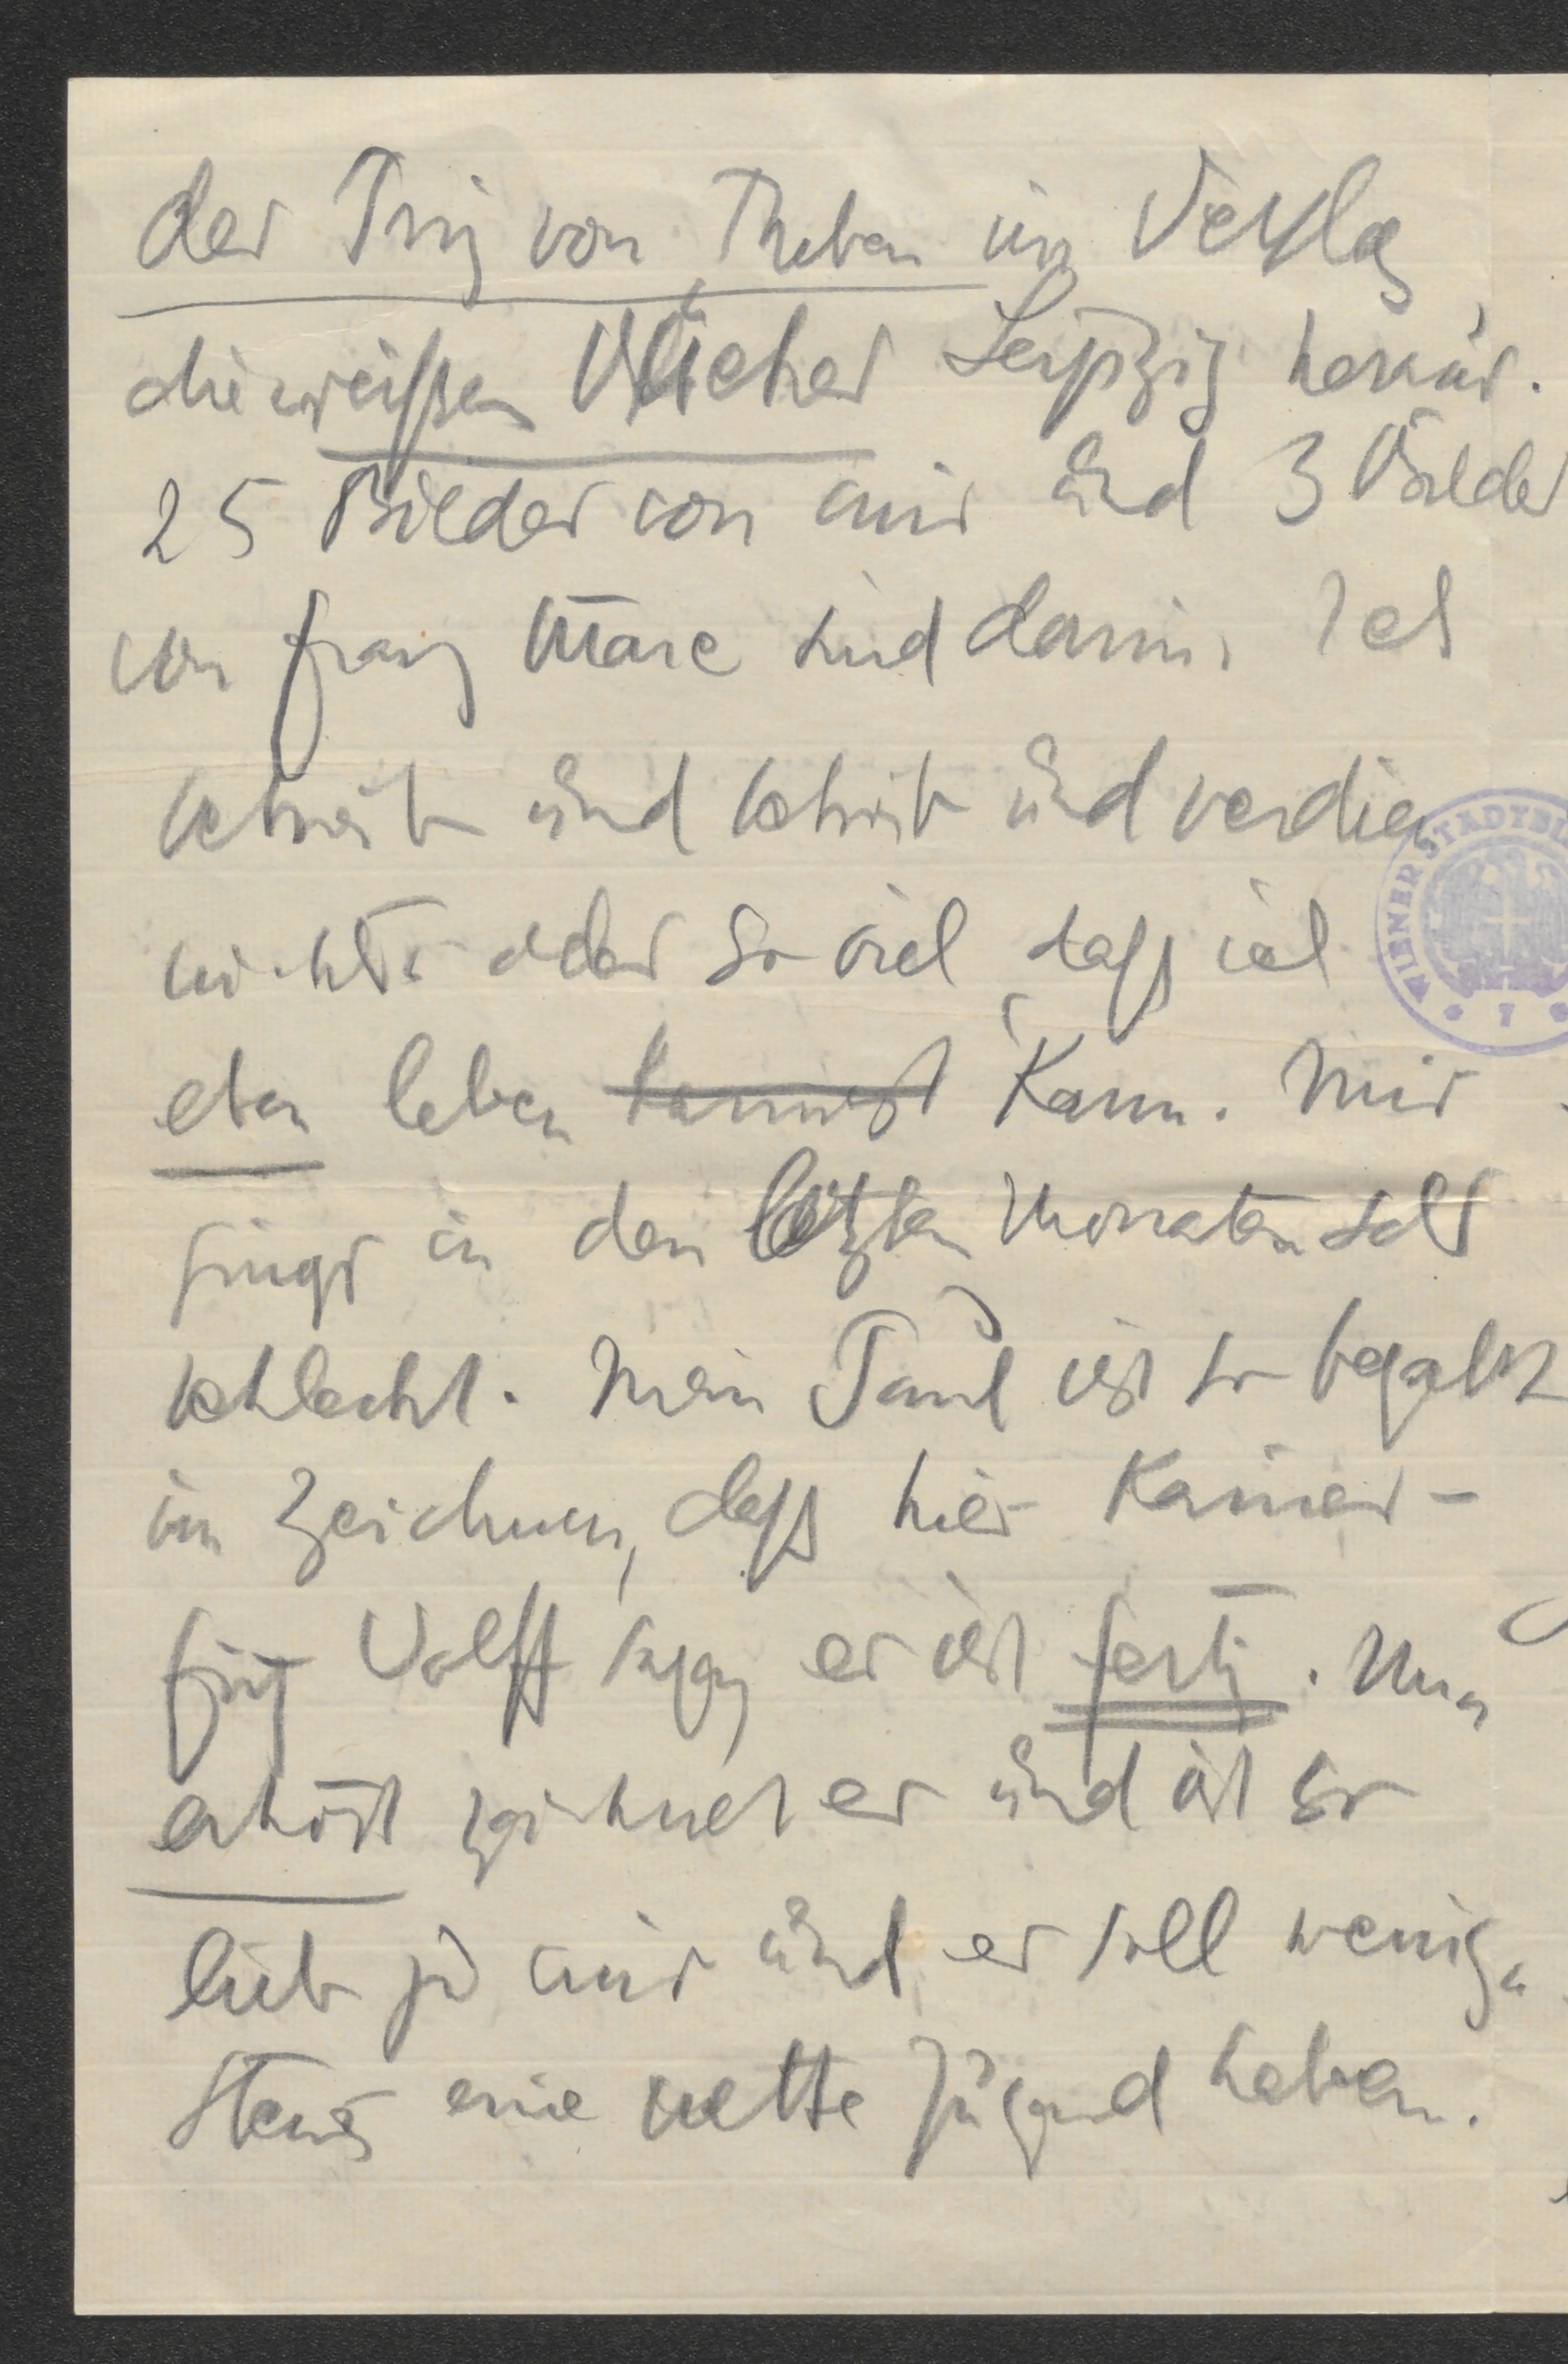 der Prinz von Theben im Verlag
die weißen Bücher Leipzig heraus.
25 Bilder von mir und 3 Bilder
von Franz Marc sind darin. Ich
schreib und schreib und verdien
nichts oder so viel daß ich
eben leben kannst kann. Mir
gings in den letzten Monaten sehr
schlecht. Mein Paul ist so begabt
im Zeichnen, daß hier Kainer –
fritz Wolff sagen er ist fertig. Nun
erhört zeichnet er und ist so
lieb zu mir und er soll wenig-
stens eine nette Jugend haben.
WIENER STADTBI
7